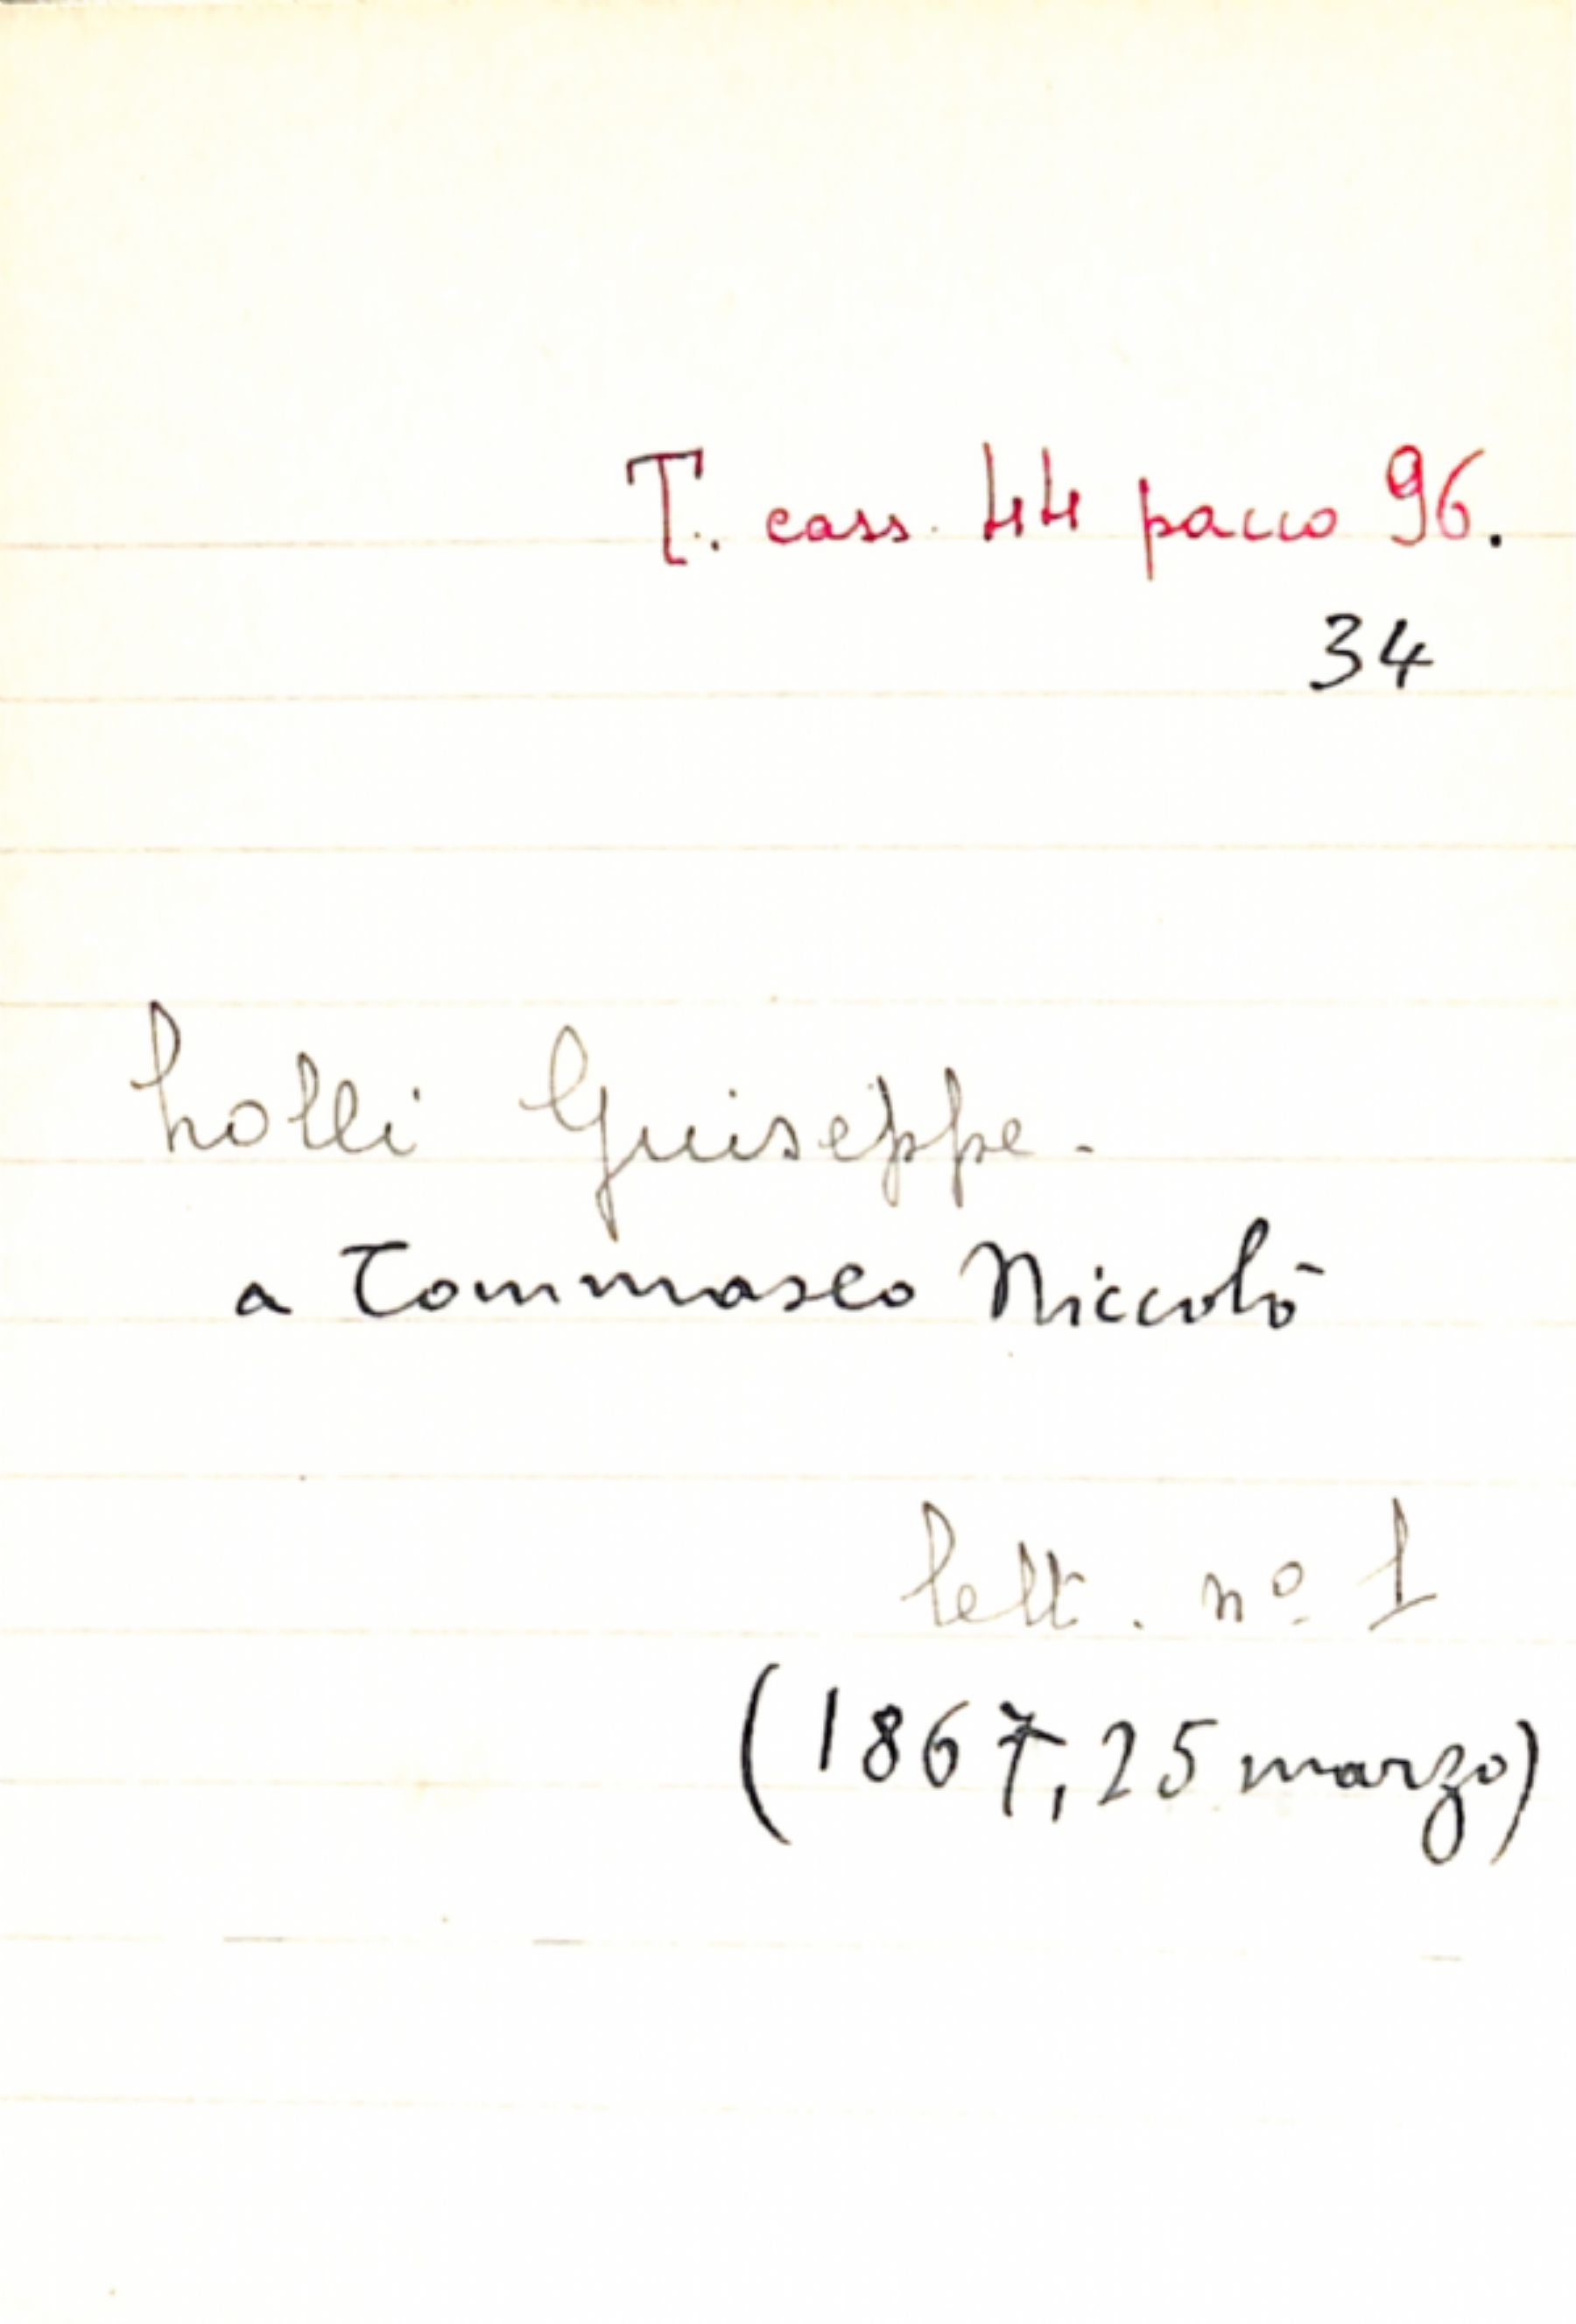 T. cass. 44 pacco 96.
34
Lolli Giuseppe.
a Tommaseo Niccolò
lett. nº 1
(1867, 25 marzo)